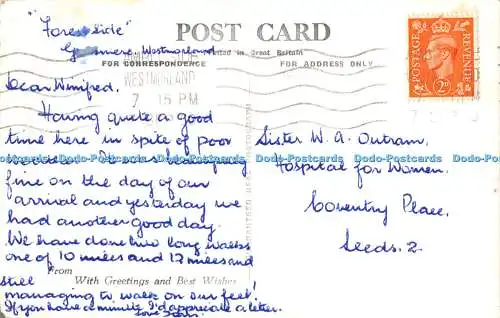 "Forest Side"
POST CARD
Grasmere, Westmorland
Printed in Great Britain
FOR CORRESPONDENCE
FOR ADDRESS ONLY
WESTMORLAND
7 15 PM
POSTAGE
REVENUE
2D
Dear Winifred,
Having quite a good
time here in spite of poor
fine on the day of our
arrival and yesterday we
had another good day.
We have done two long walks
one of 10 miles and 12 miles and
still
managing to walk on our feet!
If you have a minute I'd appreciate a letter.
Love
From
With Greetings and Best Wishes
Sister W. A. Outram,
Hospital for Women,
Coventry Place,
Leeds. 2.
Dodo-Postcards Dodo-Postcards Dodo-Postcards Dodo-Postcards Dodo-Postcards